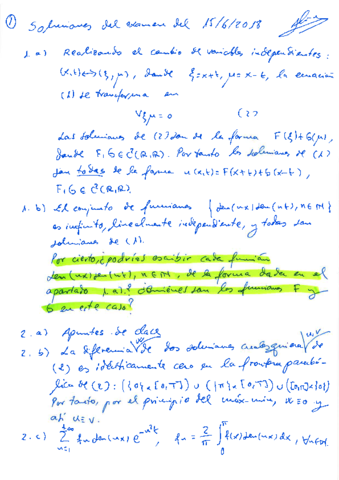 1
Soluciones del examen del 15/6/2018
1. a) Realizando el cambio de variables independientes:
(x,t)↔(ξ,μ), donde ξ=x+t, μ=x-t, la ecuación
(1) se transforma en
Vξμ=0 (2)
Las soluciones de (2) son de la forma F(ξ)+G(μ),
donde F,G∈C²(R,R). Por tanto las soluciones de (1)
son todas de la forma u(x,t)=F(x+t)+G(x-t),
F,G∈C²(R,R).
1. b) El conjunto de funciones {sen(nx)sen(nt), n∈N}
es infinito, linealmente independiente, y todas son
soluciones de (1).
Por cierto, ¿podríos escribir cada función
sen(nx)sen(nt), n∈N, de la forma dada en el
apartado 1.a)? ¿Quiénes son las funciones F y
G en este caso?
2. a) Apuntes de clase
2. b) La diferencia w de dos soluciones cualesquiera u,v de
(2) es idénticamente cero en la frontera parabó-
lica de (2): ({0}×[0,T]) ∪ ({π}×[0,T]) ∪ ([0,π]×{0})
Por tanto, por el principio del máx-min, w≡0 y
así u≡v.
2. c) ∑_{n=1}^{+∞} fn sen(nx) e^{-n²t}, fn = 2/π ∫_0^π f(x) sen(nx) dx, ∀n∈N.